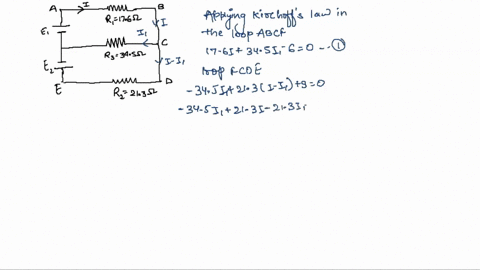 A I B
R₁=17.6Ω
I
E₁
I₁
C
R₃=34.5Ω
E₂
I-I₁
E
D
R₂=21.3Ω
Applying Kirchoff's law in
the loop ABCF
17.6I + 34.5I₁ - 6 = 0 -- ①
loop FCDE
-34.5I₁ + 21.3(I-I₁) + 9 = 0
-34.5I₁ + 21.3I - 21.3I₁